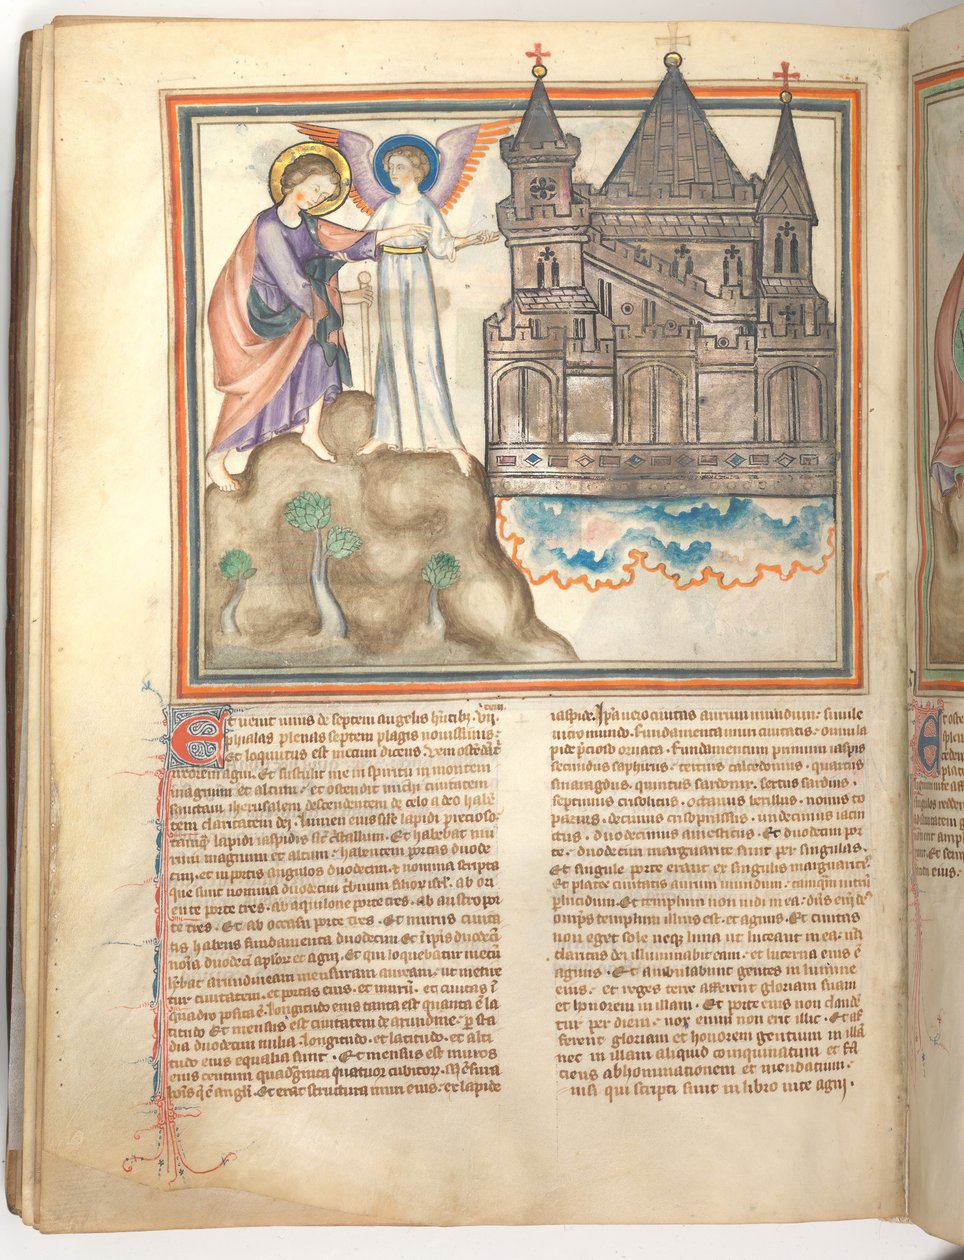 Et uenit unus de septem angelis hñtibꝫ vii.
phialas plenas septem plagis nouissimis
Et loquutus est mecum dicens. Veni
uxorem agni. Et sustulit me in spiritu in montem
magnum et altum. et ostendit michi ciuitatem
sanctam iherusalem descendentem de celo a deo habē
tem claritatem dei. lumen eius lapidi precioso
lapidi iaspidis cristallum. Et habebat mu
rum magnum et altum. habentem portas duode
cim. et in portis angulos duodecim. et nomina scripta
que sunt nomina duodecim filiorum ab ori
ente porte tres. ab aquilone porte tres. ab austro por
te tres. Et ab occasu porte tres. Et murus ciuita
tis habens fundamenta duodecim et in ipis duodecī
duodecī et agni. Et qui loquebatur mecū
arundineam mensuram auream. ut metire
tur ciuitatem. et portas eius. et murū. et ciuitas ī
quadro posita ē. longitudo eius tanta est quanta ē la
titudo Et mensus est ciuitatem de arundine. sta
dia duodecim milia. longitudo. et latitudo. et alti
tudo eius equalia sunt. Et mensus est muros
eius centum quatuor cubitorum. mensura
hoīs angli. Et erat structura muri eius. ex lapide
iaspide. Ipa uero ciuitas aurum mundum. simile
uitro mundo. fundamenta muri ciuitatis. omni la
pide p̄cioso ornata. fundamentum primum iaspis
secundus saphirus. tertius calcedonius. quartus
smaragdus. quintus sardonix. sextus sardius.
septimus crisolitus. octauus berillus. nonus to
pazius. decimus crisoprassus. undecimus iacin
ctus. duodecimus amestictus. Et duodecim por
te. duodecim margarite sunt per singulas.
Et singule porte erant ex singulis margaritis
Et platee ciuitatis aurum mundum. tamqm uitrū
plucidum. Et templum non uidi in ea. dns eni deꝰ
omps templum illius est. et agnus. Et ciuitas
non eget sole neqꝫ luna ut luceant in ea. nā
claritas dei illuminabit eam. et lucerna eius ē
agnus. Et ambulabunt gentes in lumine
eius. et reges terre afferent gloriam suam
et honorem in illam. Et porte eius non claude
tur per diem. nox enim non erit illic. Et af
ferent gloriam et honorem gentium in illā
nec in illam aliquid coinquinatum et fa
ciens abhominationem et mendatium.
nisi qui scripti sunt in libro uite agni.